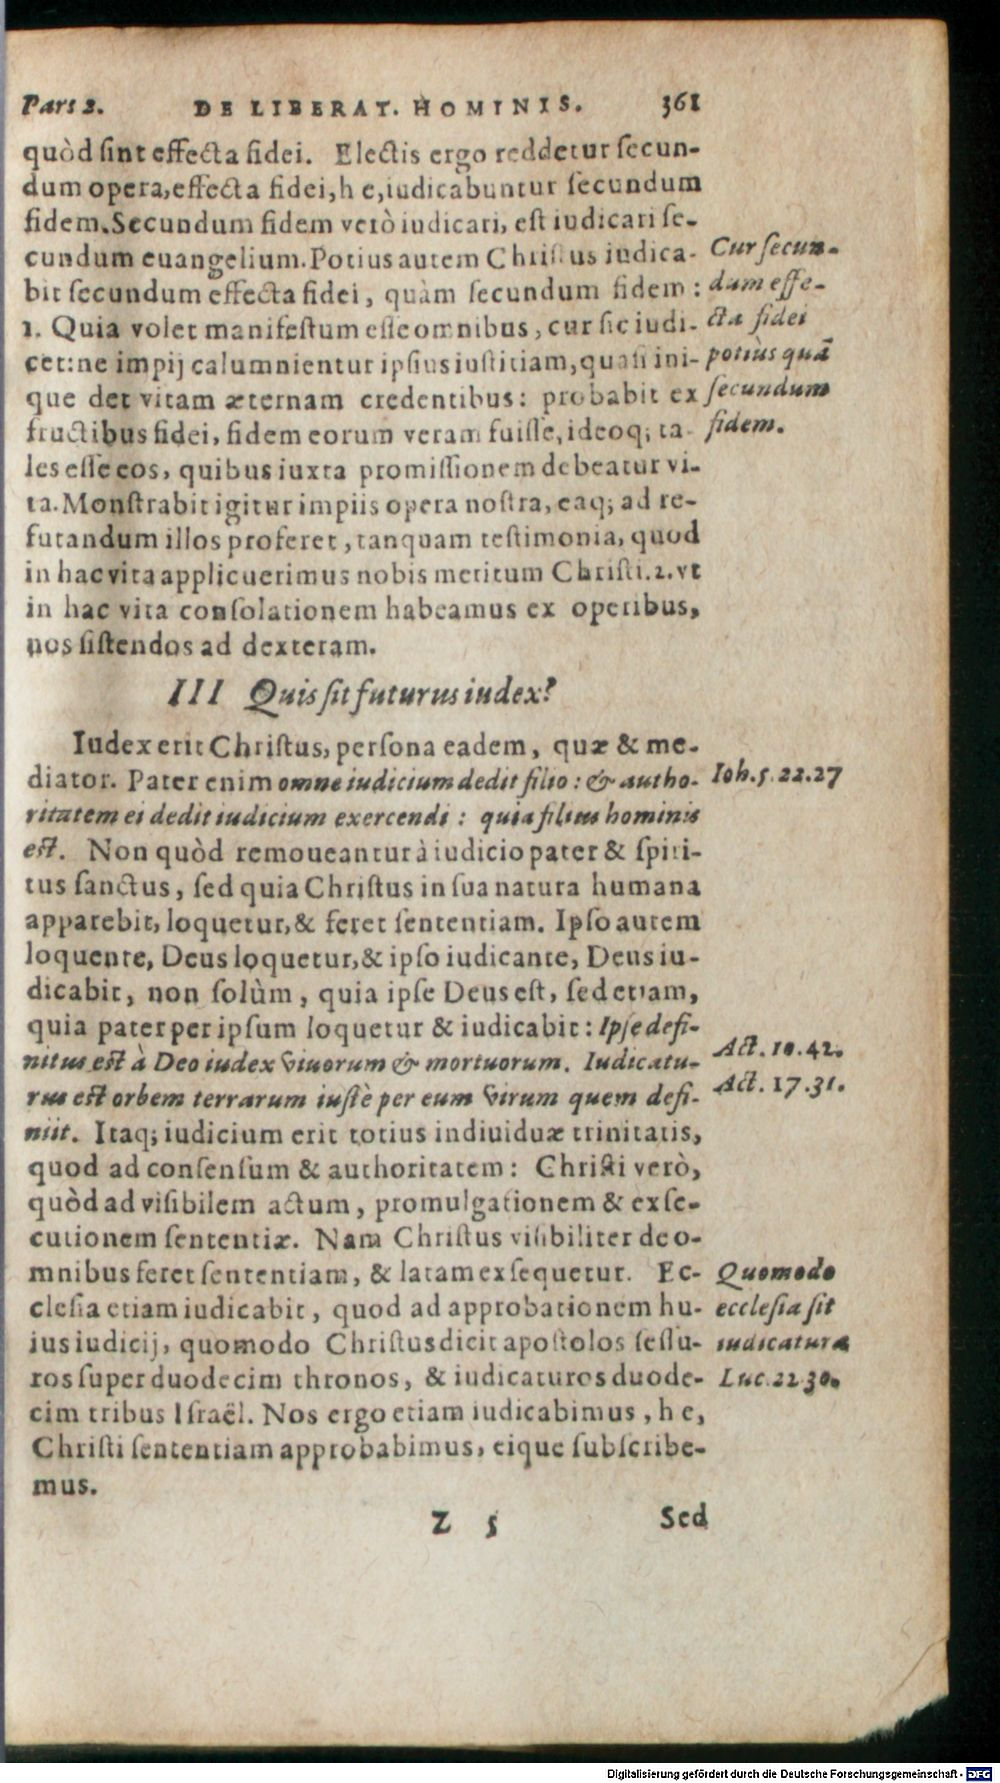 Pars 2. DE LIBERAT. HOMINIS. 361
quòd sint effecta fidei. Electis ergo reddetur secun-
dum opera, effecta fidei, h e, iudicabuntur secundum
fidem. Secundum fidem verò iudicari, est iudicari se-
cundum euangelium. Potius autem Christus iudica-
bit secundum effecta fidei, quàm secundum fidem:
1. Quia volet manifestum esse omnibus, cur sic iudi-
cet: ne impij calumnientur ipsius iustitiam, quasi ini-
que det vitam æternam credentibus: probabit ex
fructibus fidei, fidem eorum veram fuisse, ideoq; ta-
les esse eos, quibus iuxta promissionem debeatur vi-
ta. Monstrabit igitur impiis opera nostra, eaq; ad re-
futandum illos proferet, tanquam testimonia, quod
in hac vita applicuerimus nobis meritum Christi. 2. vt
in hac vita consolationem habeamus ex operibus,
nos sistendos ad dexteram.
Cur secun-
dum effe-
cta fidei
potiùs quã
secundum
fidem.
III Quis sit futurus iudex?
Iudex erit Christus, persona eadem, quæ & me-
diator. Pater enim omne iudicium dedit filio: & autho-
ritatem ei dedit iudicium exercendi: quia filius hominis
est. Non quòd remoueantur à iudicio pater & spiri-
tus sanctus, sed quia Christus in sua natura humana
apparebit, loquetur, & feret sententiam. Ipso autem
loquente, Deus loquetur, & ipso iudicante, Deus iu-
dicabit, non solùm, quia ipse Deus est, sed etiam,
quia pater per ipsum loquetur & iudicabit: Ipse defi-
nitus est à Deo iudex viuorum & mortuorum. Iudicatu-
rus est orbem terrarum iustè per eum virum quem defi-
niit. Itaq; iudicium erit totius indiuiduæ trinitatis,
quod ad consensum & authoritatem: Christi verò,
quòd ad visibilem actum, promulgationem & exse-
cutionem sententiæ. Nam Christus visibiliter de o-
mnibus feret sententiam, & latam exsequetur. Ec-
clesia etiam iudicabit, quod ad approbationem hu-
ius iudicij, quomodo Christus dicit apostolos sessu-
ros super duodecim thronos, & iudicaturos duode-
cim tribus Israël. Nos ergo etiam iudicabimus, h e,
Christi sententiam approbabimus, eique subscribe-
mus.
Ioh. 5. 22.27
Act. 10. 42.
Act. 17. 31.
Quomodo
ecclesia sit
iudicatura
Luc. 22 30.
Z 5 Sed
Digitalisierung gefördert durch die Deutsche Forschungsgemeinschaft - DFG